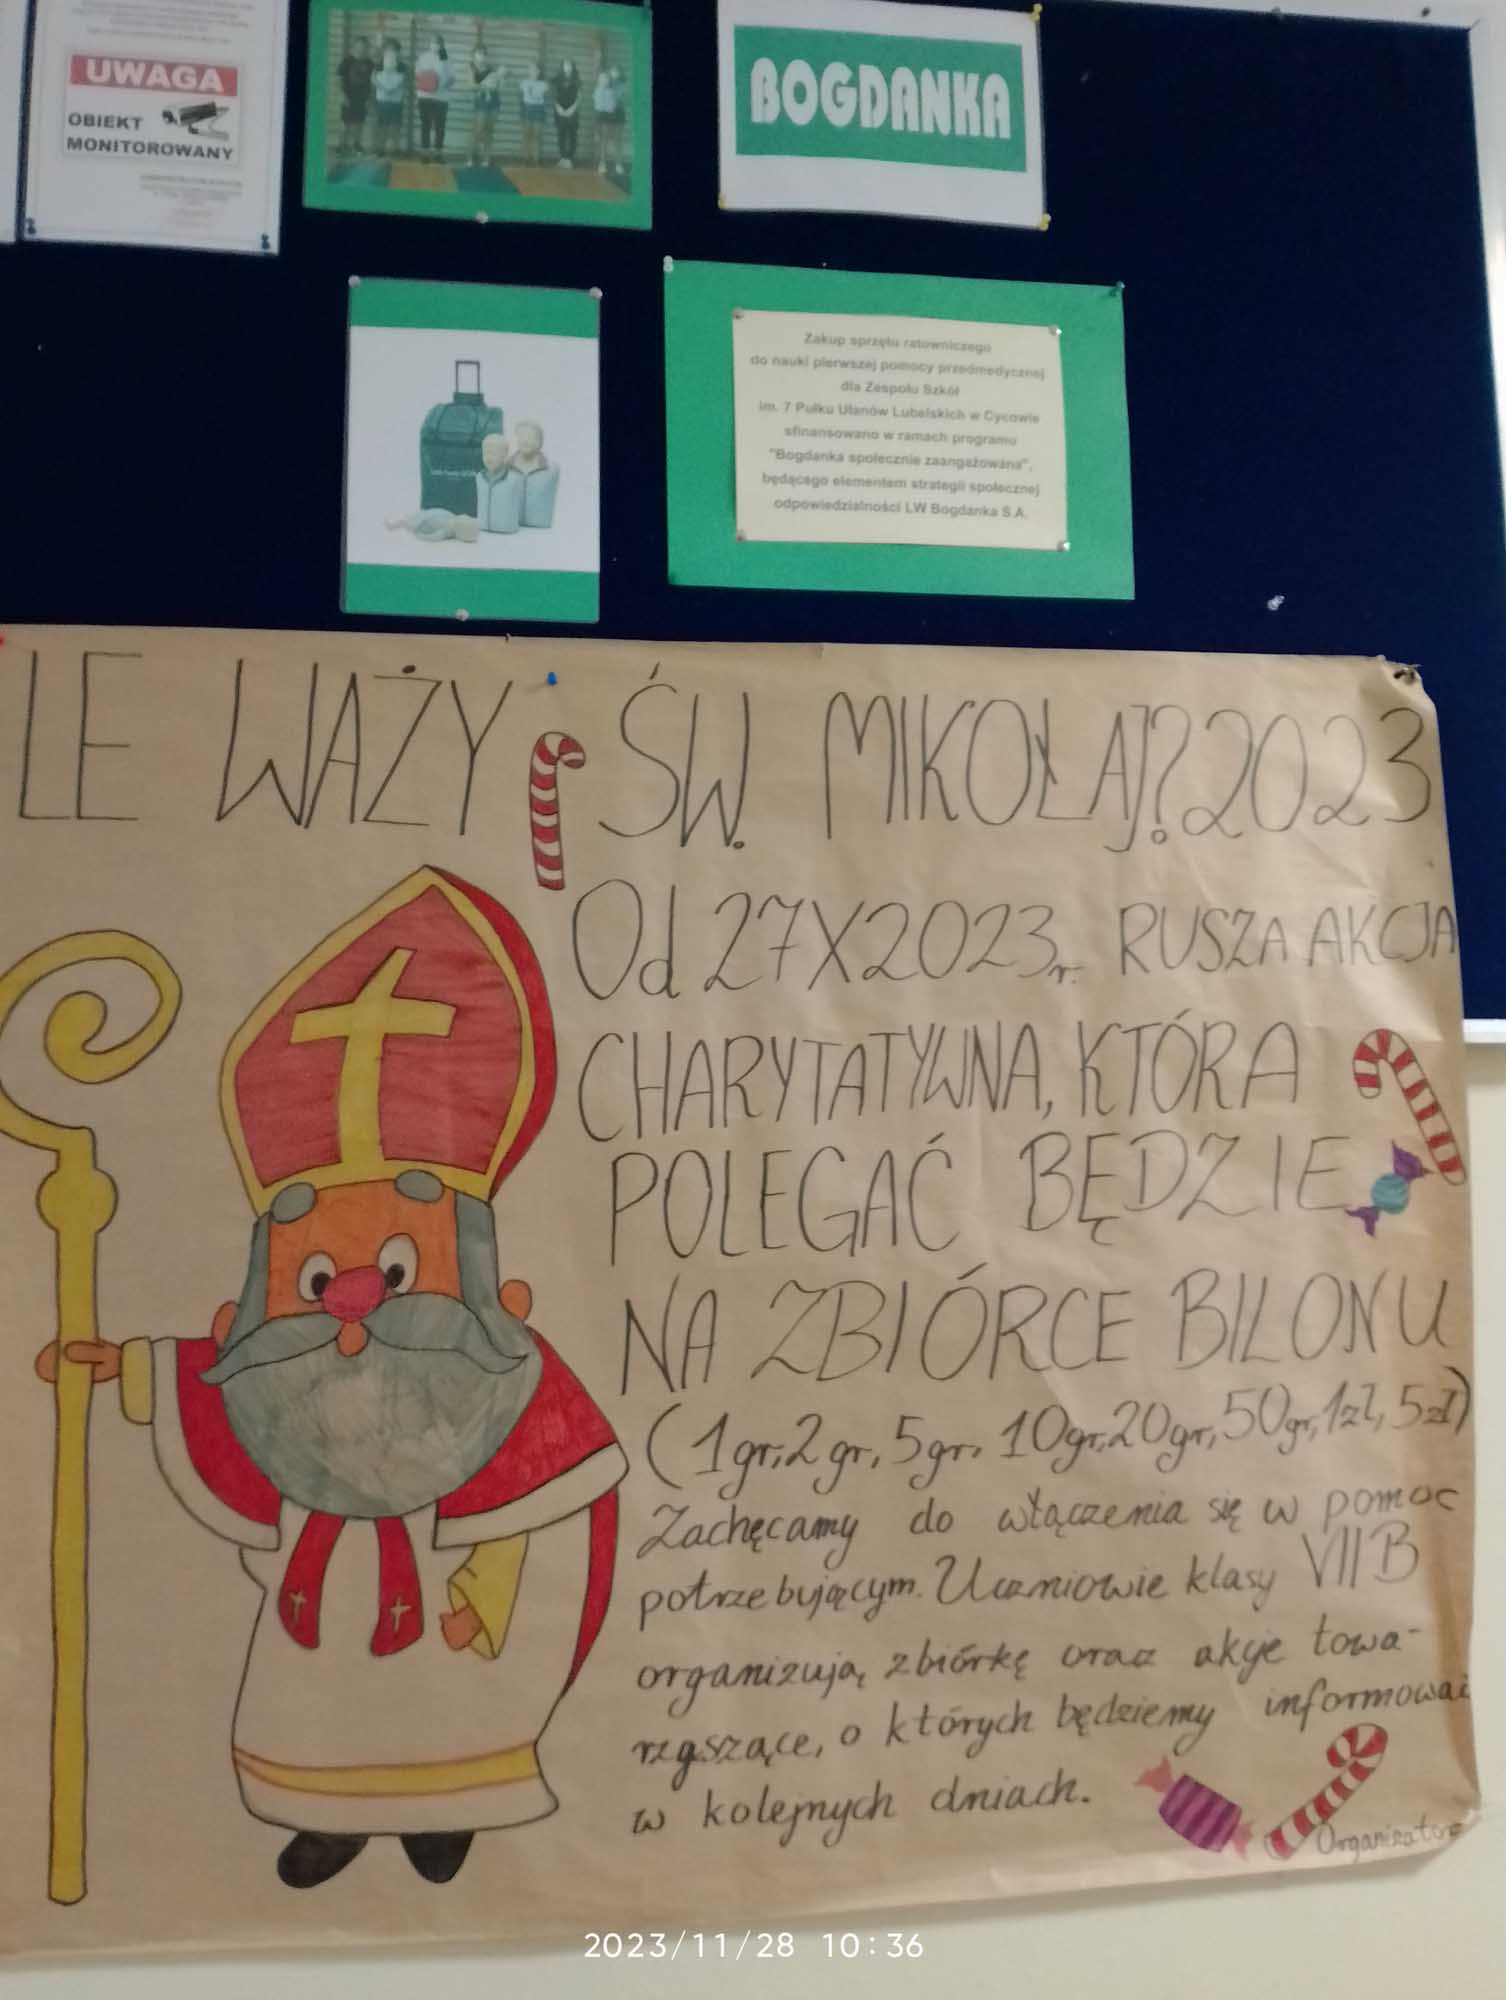 UWAGA
OBIEKT
MONITOROWANY
BOGDANKA
Zakup sprzętu ratowniczego
do nauki pierwszej pomocy przedmedycznej
dla Zespołu Szkół
im. 7 Pułku Ułanów Lubelskich w Cycowie
sfinansowano w ramach programu
"Bogdanka społecznie zaangażowana",
będącego elementem strategii społecznej
odpowiedzialności LW Bogdanka S.A.
LE WAŻY ŚW. MIKOŁAJ? 2023
Od 27X2023r. RUSZA AKCJA
CHARYTATYWNA, KTÓRA
POLEGAĆ BĘDZIE
NA ZBIÓRCE BILONU
(1gr, 2gr, 5gr, 10gr, 20gr, 50gr, 1zł, 5zł)
Zachęcamy do włączenia się w pomoc
potrzebującym. Uczniowie klasy VII B
organizują zbiórkę oraz akcje towa-
rzyszące, o których będziemy informować
w kolejnych dniach.
Organizator
2023/11/28 10:36